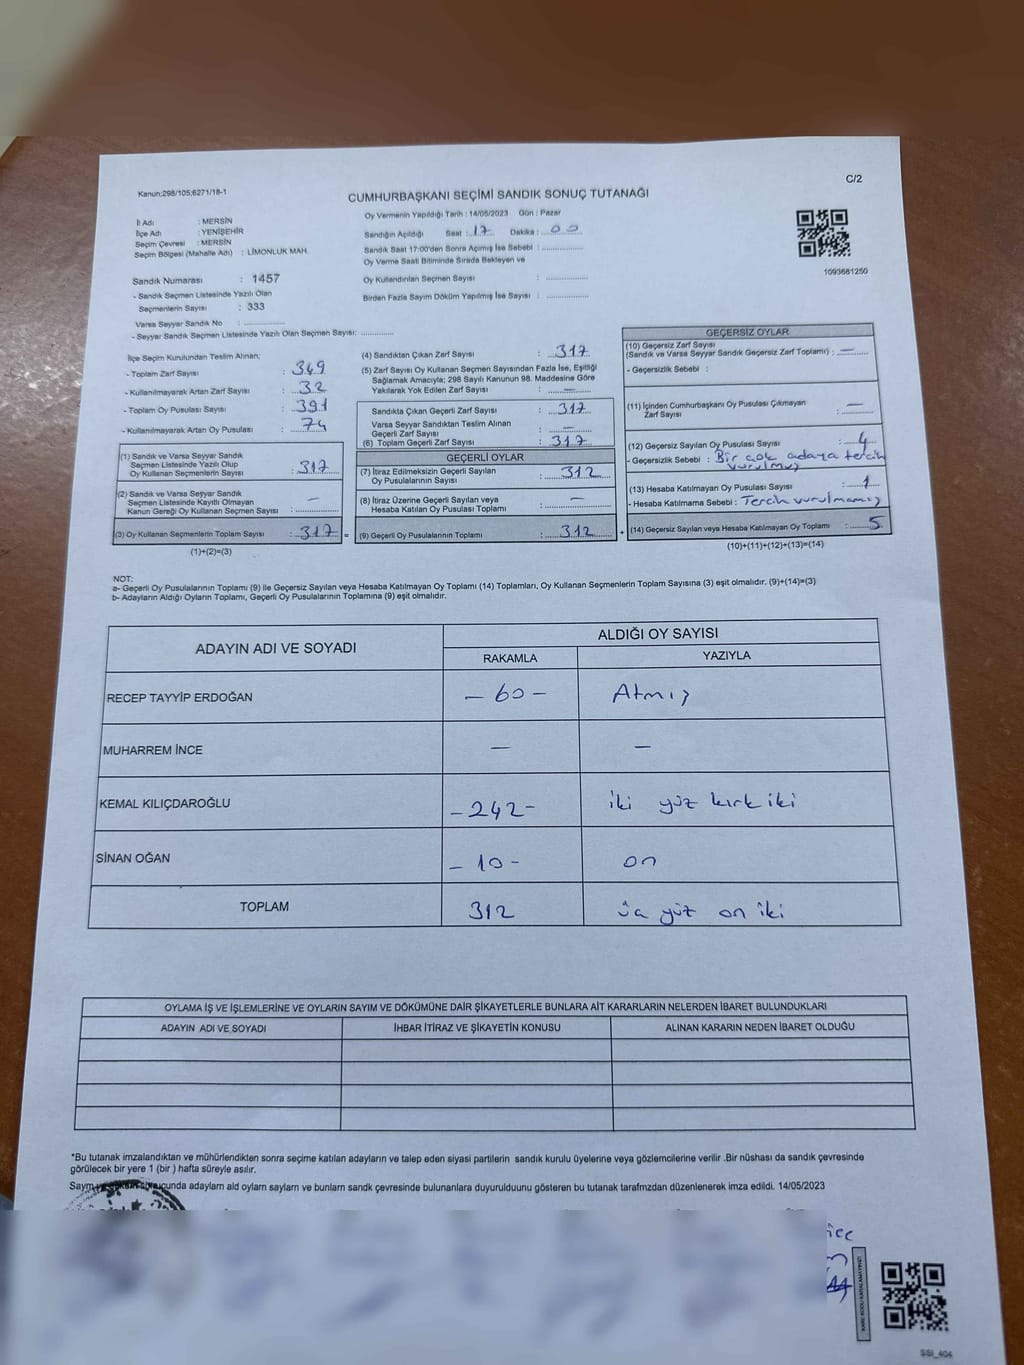 Kanun:298/105;6271/18-1
C/2
CUMHURBAŞKANI SEÇİMİ SANDIK SONUÇ TUTANAĞI
İl Adı : MERSİN
İlçe Adı : YENİŞEHİR
Seçim Çevresi : MERSİN
Seçim Bölgesi (Mahalle Adı) : LİMONLUK MAH.
Sandık Numarası : 1457
- Sandık Seçmen Listesinde Yazılı Olan
Seçmenlerin Sayısı : 333
Varsa Seyyar Sandık No : ..............
- Seyyar Sandık Seçmen Listesinde Yazılı Olan Seçmen Sayısı: ............
Oy Vermenin Yapıldığı Tarih : 14/05/2023 Gün : Pazar
Sandığın Açıldığı Saat : 17 Dakika : 00
Sandık Saat 17:00'den Sonra Açılmış İse Sebebi : ..............
Oy Verme Saati Bitiminde Sırada Bekleyen ve
Oy Kullandırılan Seçmen Sayısı : ..............
Birden Fazla Sayım Döküm Yapılmış İse Sayısı : ..............
1093681250
İlçe Seçim Kurulundan Teslim Alınan;
- Toplam Zarf Sayısı : 349
- Kullanılmayarak Artan Zarf Sayısı : 32
- Toplam Oy Pusulası Sayısı : 391
- Kullanılmayarak Artan Oy Pusulası : 74
(1) Sandık ve Varsa Seyyar Sandık
Seçmen Listesinde Yazılı Olup
Oy Kullanan Seçmenlerin Sayısı : 317
(2) Sandık ve Varsa Seyyar Sandık
Seçmen Listesinde Kayıtlı Olmayan
Kanun Gereği Oy Kullanan Seçmen Sayısı : –
(3) Oy Kullanan Seçmenlerin Toplam Sayısı : 317 =
(1)+(2)=(3)
(4) Sandıktan Çıkan Zarf Sayısı : 317
(5) Zarf Sayısı Oy Kullanan Seçmen Sayısından Fazla İse, Eşitliği
Sağlamak Amacıyla; 298 Sayılı Kanunun 98. Maddesine Göre
Yakılarak Yok Edilen Zarf Sayısı : –
Sandıkta Çıkan Geçerli Zarf Sayısı : 317
Varsa Seyyar Sandıktan Teslim Alınan
Geçerli Zarf Sayısı : –
(6) Toplam Geçerli Zarf Sayısı : 317
GEÇERLİ OYLAR
(7) İtiraz Edilmeksizin Geçerli Sayılan
Oy Pusulalarının Sayısı : 312
(8) İtiraz Üzerine Geçerli Sayılan veya
Hesaba Katılan Oy Pusulası Toplamı : –
(9) Geçerli Oy Pusulalarının Toplamı : 312 +
GEÇERSİZ OYLAR
(10) Geçersiz Zarf Sayısı
(Sandık ve Varsa Seyyar Sandık Geçersiz Zarf Toplamı) : –
- Geçersizlik Sebebi :
(11) İçinden Cumhurbaşkanı Oy Pusulası Çıkmayan
Zarf Sayısı : –
(12) Geçersiz Sayılan Oy Pusulası Sayısı : 4
- Geçersizlik Sebebi : Bir çok adaya tercih
vurulmuş
(13) Hesaba Katılmayan Oy Pusulası Sayısı : 1
- Hesaba Katılmama Sebebi : Tercih vurulmamış
(14) Geçersiz Sayılan veya Hesaba Katılmayan Oy Toplamı : 5
(10)+(11)+(12)+(13)=(14)
NOT:
a- Geçerli Oy Pusulalarının Toplamı (9) ile Geçersiz Sayılan veya Hesaba Katılmayan Oy Toplamı (14) Toplamları, Oy Kullanan Seçmenlerin Toplam Sayısına (3) eşit olmalıdır. (9)+(14)=(3)
b- Adayların Aldığı Oyların Toplamı, Geçerli Oy Pusulalarının Toplamına (9) eşit olmalıdır.
ADAYIN ADI VE SOYADI
ALDIĞI OY SAYISI
RAKAMLA YAZIYLA
RECEP TAYYİP ERDOĞAN – 60 – Atmış
MUHARREM İNCE – –
KEMAL KILIÇDAROĞLU – 242 – iki yüz kırk iki
SİNAN OĞAN – 10 – on
TOPLAM 312 üç yüz on iki
OYLAMA İŞ VE İŞLEMLERİNE VE OYLARIN SAYIM VE DÖKÜMÜNE DAİR ŞİKAYETLERLE BUNLARA AİT KARARLARIN NELERDEN İBARET BULUNDUKLARI
ADAYIN ADI VE SOYADI İHBAR İTİRAZ VE ŞİKAYETİN KONUSU ALINAN KARARIN NEDEN İBARET OLDUĞU
*Bu tutanak imzalandıktan ve mühürlendikten sonra seçime katılan adayların ve talep eden siyasi partilerin sandık kurulu üyelerine veya gözlemcilerine verilir .Bir nüshası da sandık çevresinde
görülecek bir yere 1 (bir ) hafta süreyle asılır.
Sayım ve adaylarn ald oylarn saylarn ve bunlarn sandk çevresinde bulunanlara duyurulduunu gösteren bu tutanak tarafmzdan düzenlenerek imza edildi. 14/05/2023
SSI_404